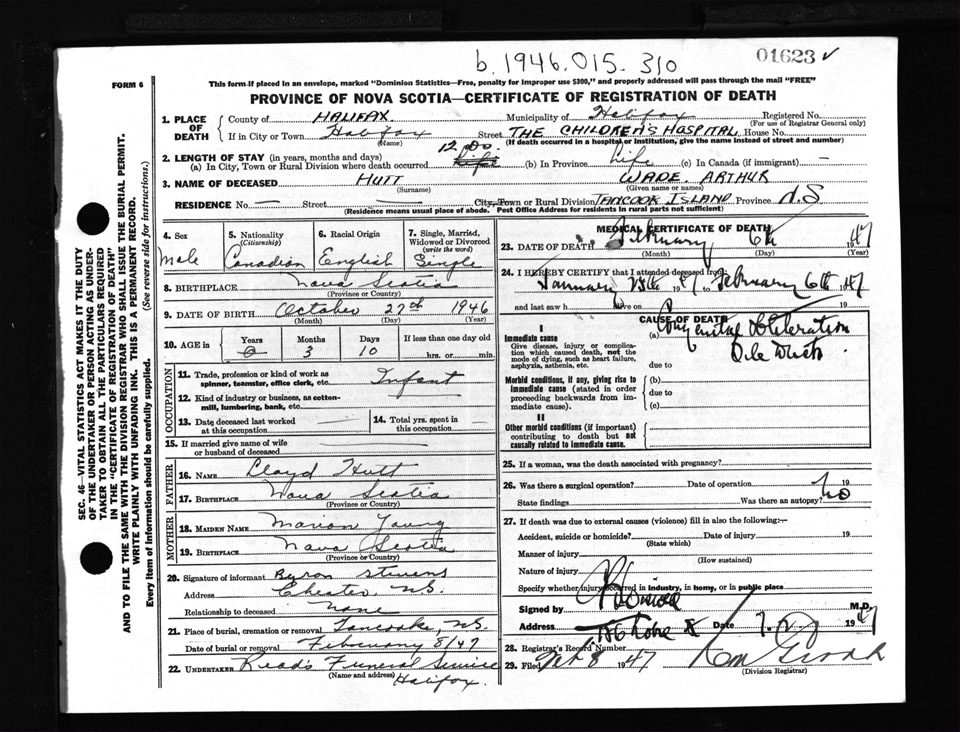 b. 1946.015.310
01623 ✓
FORM 6
This form if placed in an envelope, marked "Dominion Statistics—Free, penalty for improper use $300," and properly addressed will pass through the mail "FREE"
PROVINCE OF NOVA SCOTIA—CERTIFICATE OF REGISTRATION OF DEATH
SEC. 46 VITAL STATISTICS ACT MAKES IT THE DUTY
OF THE UNDERTAKER OR PERSON ACTING AS UNDER-
TAKER TO OBTAIN ALL THE PARTICULARS REQUIRED
IN THE "CERTIFICATE OF REGISTRATION OF DEATH"
AND TO FILE THE SAME WITH THE DIVISION REGISTRAR WHO SHALL ISSUE THE BURIAL PERMIT.
WRITE PLAINLY WITH UNFADING INK. THIS IS A PERMANENT RECORD.
Every item of Information should be carefully supplied. (See reverse side for instructions.)
1. PLACE OF DEATH County of HALIFAX. Municipality of Halifax Registered No.
(For use of Registrar General only)
If in City or Town Halifax Street THE CHILDREN'S HOSPITAL House No.
(Name) (If death occurred in a hospital or institution, give the name instead of street and number)
2. LENGTH OF STAY (in years, months and days)
(a) In City, Town or Rural Division where death occurred 12 Life (b) In Province Life (c) In Canada (if immigrant) —
3. NAME OF DECEASED HUTT WADE ARTHUR
(Surname) (Given name or names)
RESIDENCE No. — Street — City, Town or Rural Division TANCOOK ISLAND Province N.S
(Residence means usual place of abode. Post Office Address for residents in rural parts not sufficient)
4. Sex
Male
5. Nationality
(Citizenship)
Canadian
6. Racial Origin
English
7. Single, Married,
Widowed or Divorced
(write the word)
Single
8. BIRTHPLACE Nova Scotia
(Province or Country)
9. DATE OF BIRTH October 27th 1946
(Month) (Day) (Year)
10. AGE in Years Months Days If less than one day old
0 3 10 hrs. or min.
OCCUPATION
11. Trade, profession or kind of work as
spinner, teamster, office clerk, etc. Infant
12. Kind of industry or business, as cotton-
mill, lumbering, bank, etc.
13. Date deceased last worked
at this occupation —
14. Total yrs. spent in
this occupation —
15. If married give name of wife
or husband of deceased
FATHER
16. NAME Lloyd Hutt
17. BIRTHPLACE Nova Scotia
(Province or Country)
MOTHER
18. MAIDEN NAME Marion Young
19. BIRTHPLACE Nova Scotia
(Province or Country)
20. Signature of informant Byron Stevens
Address Chester, N.S.
Relationship to deceased None
21. Place of burial, cremation or removal Tancooke, N.S
Date of burial or removal February 8/47
22. UNDERTAKER Read's Funeral Service
(Name and address) Halifax.
MEDICAL CERTIFICATE OF DEATH
23. DATE OF DEATH February 6th 1947
(Month) (Day) (Year)
24. I HEREBY CERTIFY that I attended deceased from
January 1947 February 6th 1947
and last saw h alive on 19
CAUSE OF DEATH
I
Immediate cause
Give disease, injury or complica-
tion which caused death, not the
mode of dying, such as heart failure,
asphyxia, asthenia, etc.
(a) Congenital Obliteration
Bile Ducts.
due to
Morbid conditions, if any, giving rise to
immediate cause (stated in order
proceeding backwards from im-
mediate cause).
(b)
due to
(c)
II
Other morbid conditions (if important)
contributing to death but not
causally related to immediate cause.
25. If a woman, was the death associated with pregnancy?
26. Was there a surgical operation? Date of operation 19
State findings Was there an autopsy? No
27. If death was due to external causes (violence) fill in also the following:—
Accident, suicide or homicide? Date of injury 19
(State which)
Manner of injury
(How sustained)
Nature of injury
Specify whether injury occurred in industry, in home, or in public place
Signed by M.D.
Address Date 1947
28. Registrar's Record Number
29. Filed Feb 8 1947
(Division Registrar)